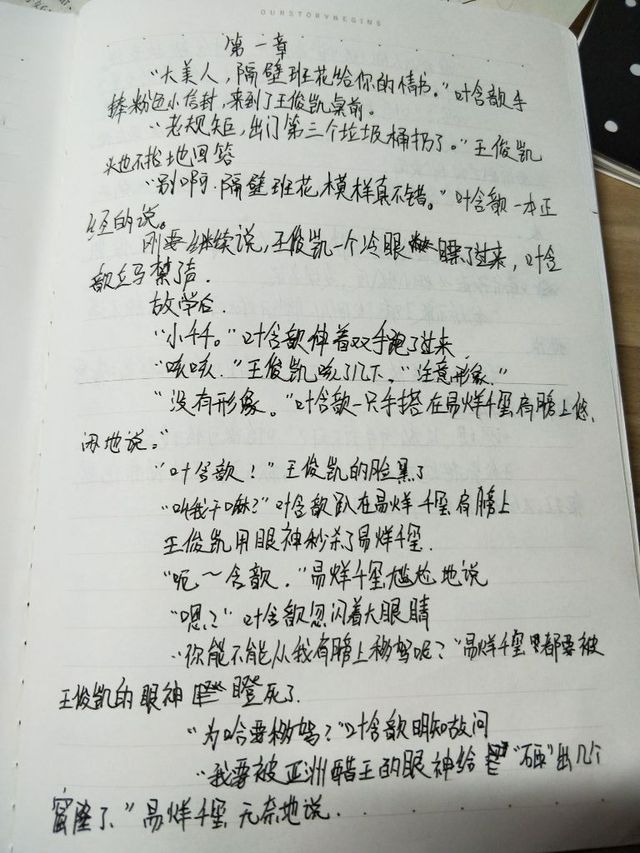 OURSTORYBEGINS
第一章
“大美人，隔壁班花给你的情书。”叶含歆手
捧粉色小信封，来到了王俊凯桌前。
“老规矩，出门第三个垃圾桶扔了。”王俊凯
头也不抬地回答
“别啊，隔壁班花模样真不错。”叶含歆一本正
经的说。
刚要继续说，王俊凯一个冷眼瞟了过来，叶含
歆立马禁了声.
放学后.
“小千千。”叶含歆伸着双手跑了过来.
“咳咳.”王俊凯咳了几下，“注意形象.”
“没有形象。”叶含歆一只手搭在易烊千玺肩膀上悠
闲地说。”
“叶含歆！”王俊凯的脸黑了
“叫我干嘛？”叶含歆趴在易烊千玺肩膀上
王俊凯用眼神秒杀了易烊千玺.
“呃～含歆.”易烊千玺尴尬地说
“嗯？”叶含歆忽闪着大眼睛
“你能不能从我肩膀上移驾呢？”易烊千玺都要被
王俊凯的眼神瞪死了.
“为啥要移驾？”叶含歆明知故问
“我要被亚洲醋王的眼神给“石更”出几个
窟窿了.”易烊千玺无奈地说.